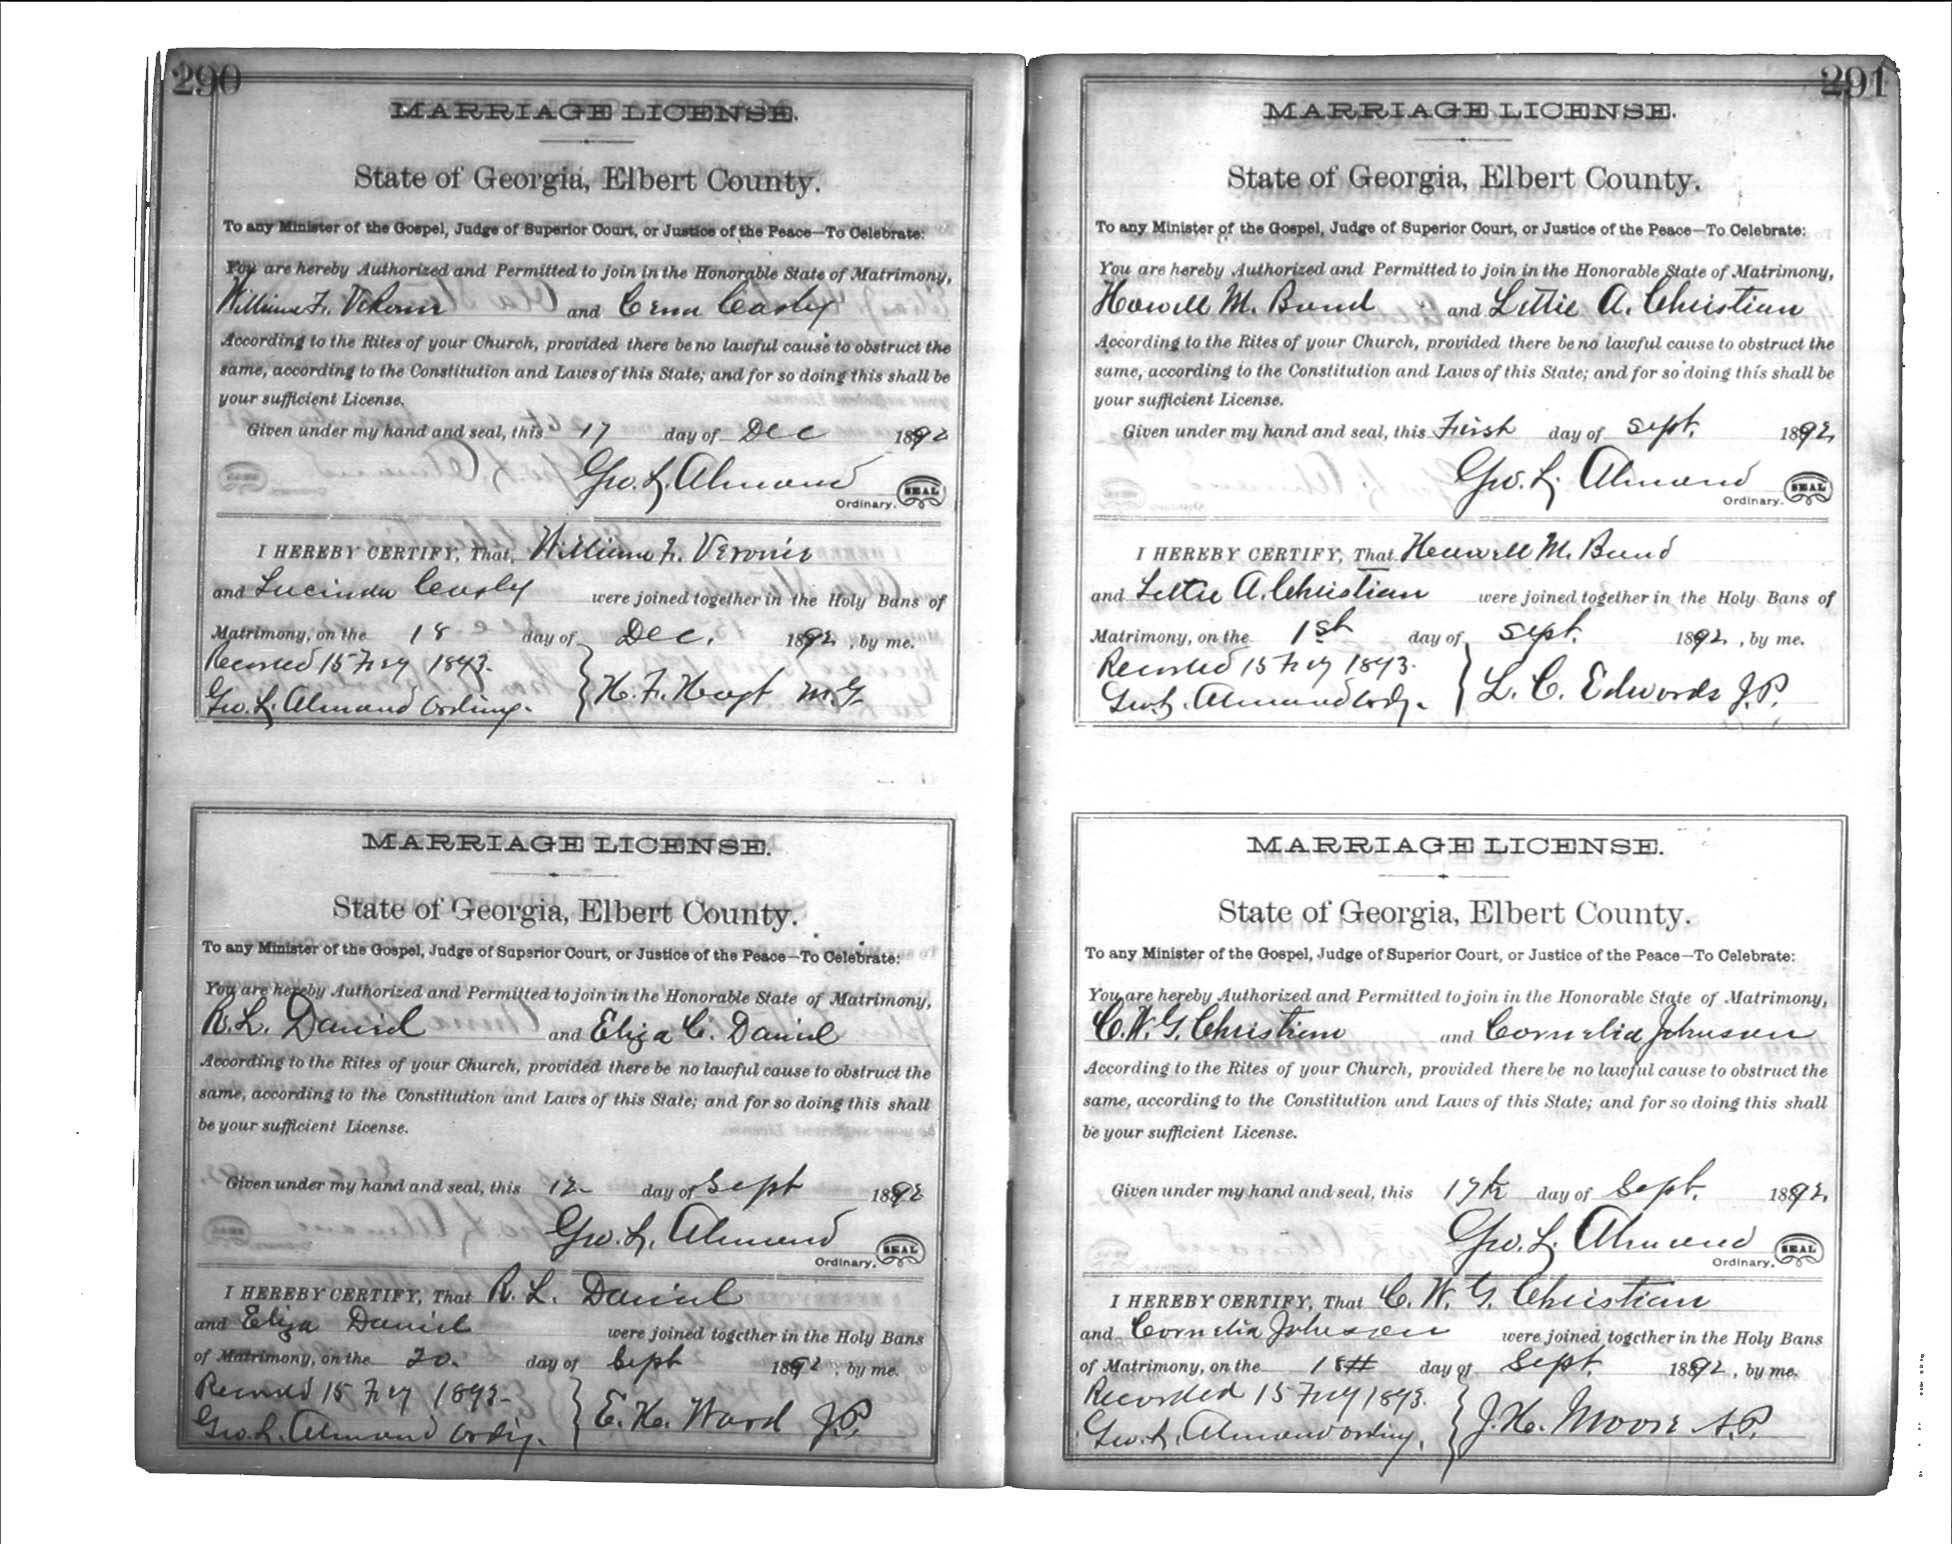 290
MARRIAGE LICENSE.
State of Georgia, Elbert County.
To any Minister of the Gospel, Judge of Superior Court, or Justice of the Peace—To Celebrate:
You are hereby Authorized and Permitted to join in the Honorable State of Matrimony,
William F. and
According to the Rites of your Church, provided there be no lawful cause to obstruct the
same, according to the Constitution and Laws of this State; and for so doing this shall be
your sufficient License.
Given under my hand and seal, this 17 day of Dec 1892
Geo. L. Almand
Ordinary. SEAL
I HEREBY CERTIFY, That, William F.
and Lucinda were joined together in the Holy Bans of
Matrimony, on the 18 day of Dec. 1892, by me.
Recorded 15 1893.
Geo. L. Almand H. F. M.G.
MARRIAGE LICENSE.
State of Georgia, Elbert County.
To any Minister of the Gospel, Judge of Superior Court, or Justice of the Peace—To Celebrate:
You are hereby Authorized and Permitted to join in the Honorable State of Matrimony,
R. L. Daniel and Eliza C. Daniel
According to the Rites of your Church, provided there be no lawful cause to obstruct the
same, according to the Constitution and Laws of this State; and for so doing this shall
be your sufficient License.
Given under my hand and seal, this 12 day of Sept 1892
Geo. L. Almand
Ordinary. SEAL
I HEREBY CERTIFY, That R. L. Daniel
and Eliza Daniel were joined together in the Holy Bans
of Matrimony, on the 20. day of Sept 1892, by me.
Recorded 15 1893
Geo. L. Almand E. H. Ward J.P.
291
MARRIAGE LICENSE.
State of Georgia, Elbert County.
To any Minister of the Gospel, Judge of Superior Court, or Justice of the Peace—To Celebrate:
You are hereby Authorized and Permitted to join in the Honorable State of Matrimony,
Howell M. Bond and Lettie A. Christian
According to the Rites of your Church, provided there be no lawful cause to obstruct the
same, according to the Constitution and Laws of this State; and for so doing this shall be
your sufficient License.
Given under my hand and seal, this First day of Sept. 1892
Geo. L. Almand
Ordinary. SEAL
I HEREBY CERTIFY, That Howell M. Bond
and Lettie A. Christian were joined together in the Holy Bans of
Matrimony, on the 1st day of Sept. 1892, by me.
Recorded 15 1893.
Geo. L. Almand L. C. Edwards J.P.
MARRIAGE LICENSE.
State of Georgia, Elbert County.
To any Minister of the Gospel, Judge of Superior Court, or Justice of the Peace—To Celebrate:
You are hereby Authorized and Permitted to join in the Honorable State of Matrimony,
C. W. G. Christian and Cornelia Johnson
According to the Rites of your Church, provided there be no lawful cause to obstruct the
same, according to the Constitution and Laws of this State; and for so doing this shall
be your sufficient License.
Given under my hand and seal, this 17th day of Sept. 1892
Geo. L. Almand
Ordinary. SEAL
I HEREBY CERTIFY, That C. W. G. Christian
and Cornelia Johnson were joined together in the Holy Bans
of Matrimony, on the 18th day of Sept. 1892, by me.
Recorded 15 1893.
Geo. L. Almand J. H. Moore